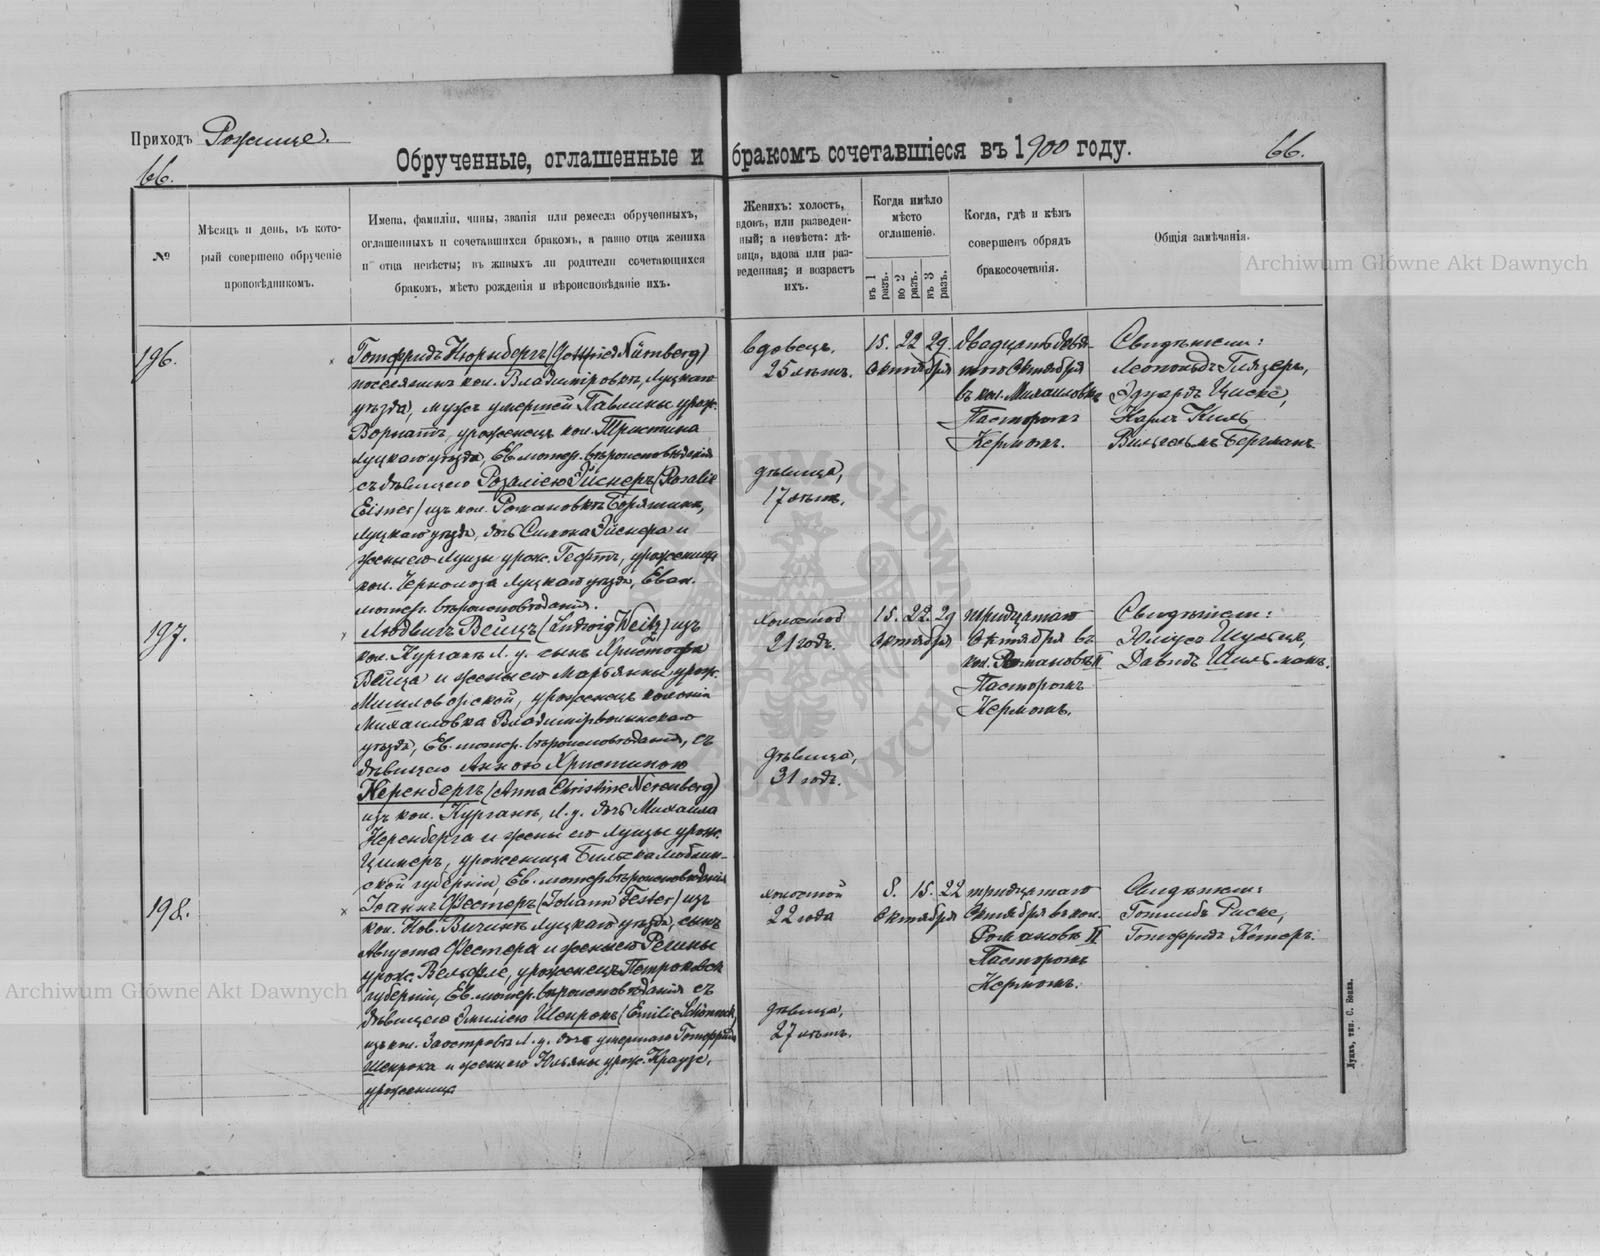 Приходъ Рожище.
66.
Обрученные, оглашенные и бракомъ сочетавшіеся въ 1900 году.
66.
№
Мѣсяцъ и день, въ кото-
рый совершено обрученіе
проповѣдникомъ.
Имена, фамиліи, чины, званія или ремесла обрученныхъ,
оглашенныхъ и сочетавшихся бракомъ, а равно отца жениха
и отца невѣсты; въ живыхъ ли родители сочетающихся
бракомъ, мѣсто рожденія и вѣроисповѣданіе ихъ.
Женихъ: холостъ,
вдовъ, или разведен-
ный; а невѣста: дѣ-
вица, вдова или раз-
веденная; и возрастъ
ихъ.
Когда имѣло
мѣсто
оглашеніе.
въ 1 разъ.
во 2 разъ.
въ 3 разъ.
Когда, гдѣ и кѣмъ
совершенъ обрядъ
бракосочетанія.
Общія замѣчанія.
Archiwum Główne Akt Dawnych
196.
Готфридъ Нюрнбергъ (Gottfried Nürnberg)
поселянинъ кол. Владиміровкѣ, Луцкаго
уѣзда, мужъ умершей Павлины урож.
Ворматъ, уроженецъ кол. Тристина
Луцкаго уѣзда, Ев. лютер. вѣроисповѣданія
съ дѣвицею Розаліею Эйснеръ (Rosalie
Eisner) изъ кол. Романовкѣ Борятинъ,
Луцкаго уѣзда, дочь Симона Эйснера и
жены его Луизы урож. Гефтъ, уроженица
кол. Чернолоза Луцкаго уѣзда, Еван.
лютер. вѣроисповѣданія.
вдовецъ.
25 лѣтъ.
дѣвица,
17 лѣтъ.
15. 22 29.
Октября
двадцать девя-
того Октября
въ кол. Михаиловкѣ
Пасторомъ
Кермомъ.
Свидѣтели:
Леопольдъ Глязеръ,
Эдуардъ Циске,
Карлъ Киль,
Вильгельмъ Бергманъ
197.
Людвигъ Вейцъ (Ludwig Weitz) изъ
кол. Курганъ Л. у. сынъ Христофа
Вейца и жены его Марьянны урож.
Мишловорской, уроженецъ колоніи
Михаиловка Владимірволынскаго
уѣзда, Ев. лютер. вѣроисповѣданія, съ
дѣвицею Анною Христиною
Неренбергъ (Anna Christine Nerenberg)
изъ кол. Курганъ, Л. у. дочь Михаила
Неренберга и жены его Луизы урож.
Цимеръ, уроженица Бильска Люблин-
ской губерніи, Ев. лютер. вѣроисповѣданія
холостой
21 годъ.
дѣвица,
31 годъ.
15. 22. 29
Октября
тридцатаго
Октября въ
кол. Романовкѣ II
Пасторомъ
Кермомъ.
Свидѣтели:
Юліусъ Шульцъ,
Давидъ Шильманъ.
198.
Іоаннъ Фестеръ (Johann Fester) изъ
кол. Нов. Вичинѣ Луцкаго уѣзда, сынъ
Августа Фестера и жены его Регины
урож. Вельфле, уроженецъ Петроковск
губерніи, Ев. лютер. вѣроисповѣданія съ
дѣвицею Эмиліею Шенрокъ (Emilie Schönrock)
изъ кол. Заостровъ Л. у. дочь умершаго Готфрида
Шенрока и жены его Юльяны урож. Краузе,
уроженица
холостой
22 года
дѣвица,
27 лѣтъ.
8. 15. 22
Октября
тридцатаго
Октября въ кол.
Романовкѣ II
Пасторомъ
Кермомъ.
Свидѣтели:
Готлибъ Риске,
Готфридъ Кетеръ.
Archiwum Główne Akt Dawnych
Луцкъ, тип. С. Бонка.